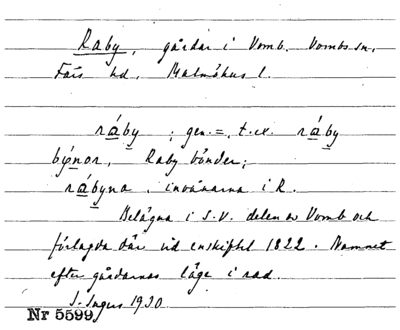 Raby, gårdar i Vomb. Vombs sn,
Färs hd, Malmöhus l.
ráby ; gen. =, t. ex. ráby
býnor, Raby bönder;
rábyna, invånarna i R.
Belägna i S.V. delen av Vomb och
förlagda där vid enskiftet 1822. Namnet
efter gårdarnas läge i rad.
J. Ingers 1930
Nr 5599